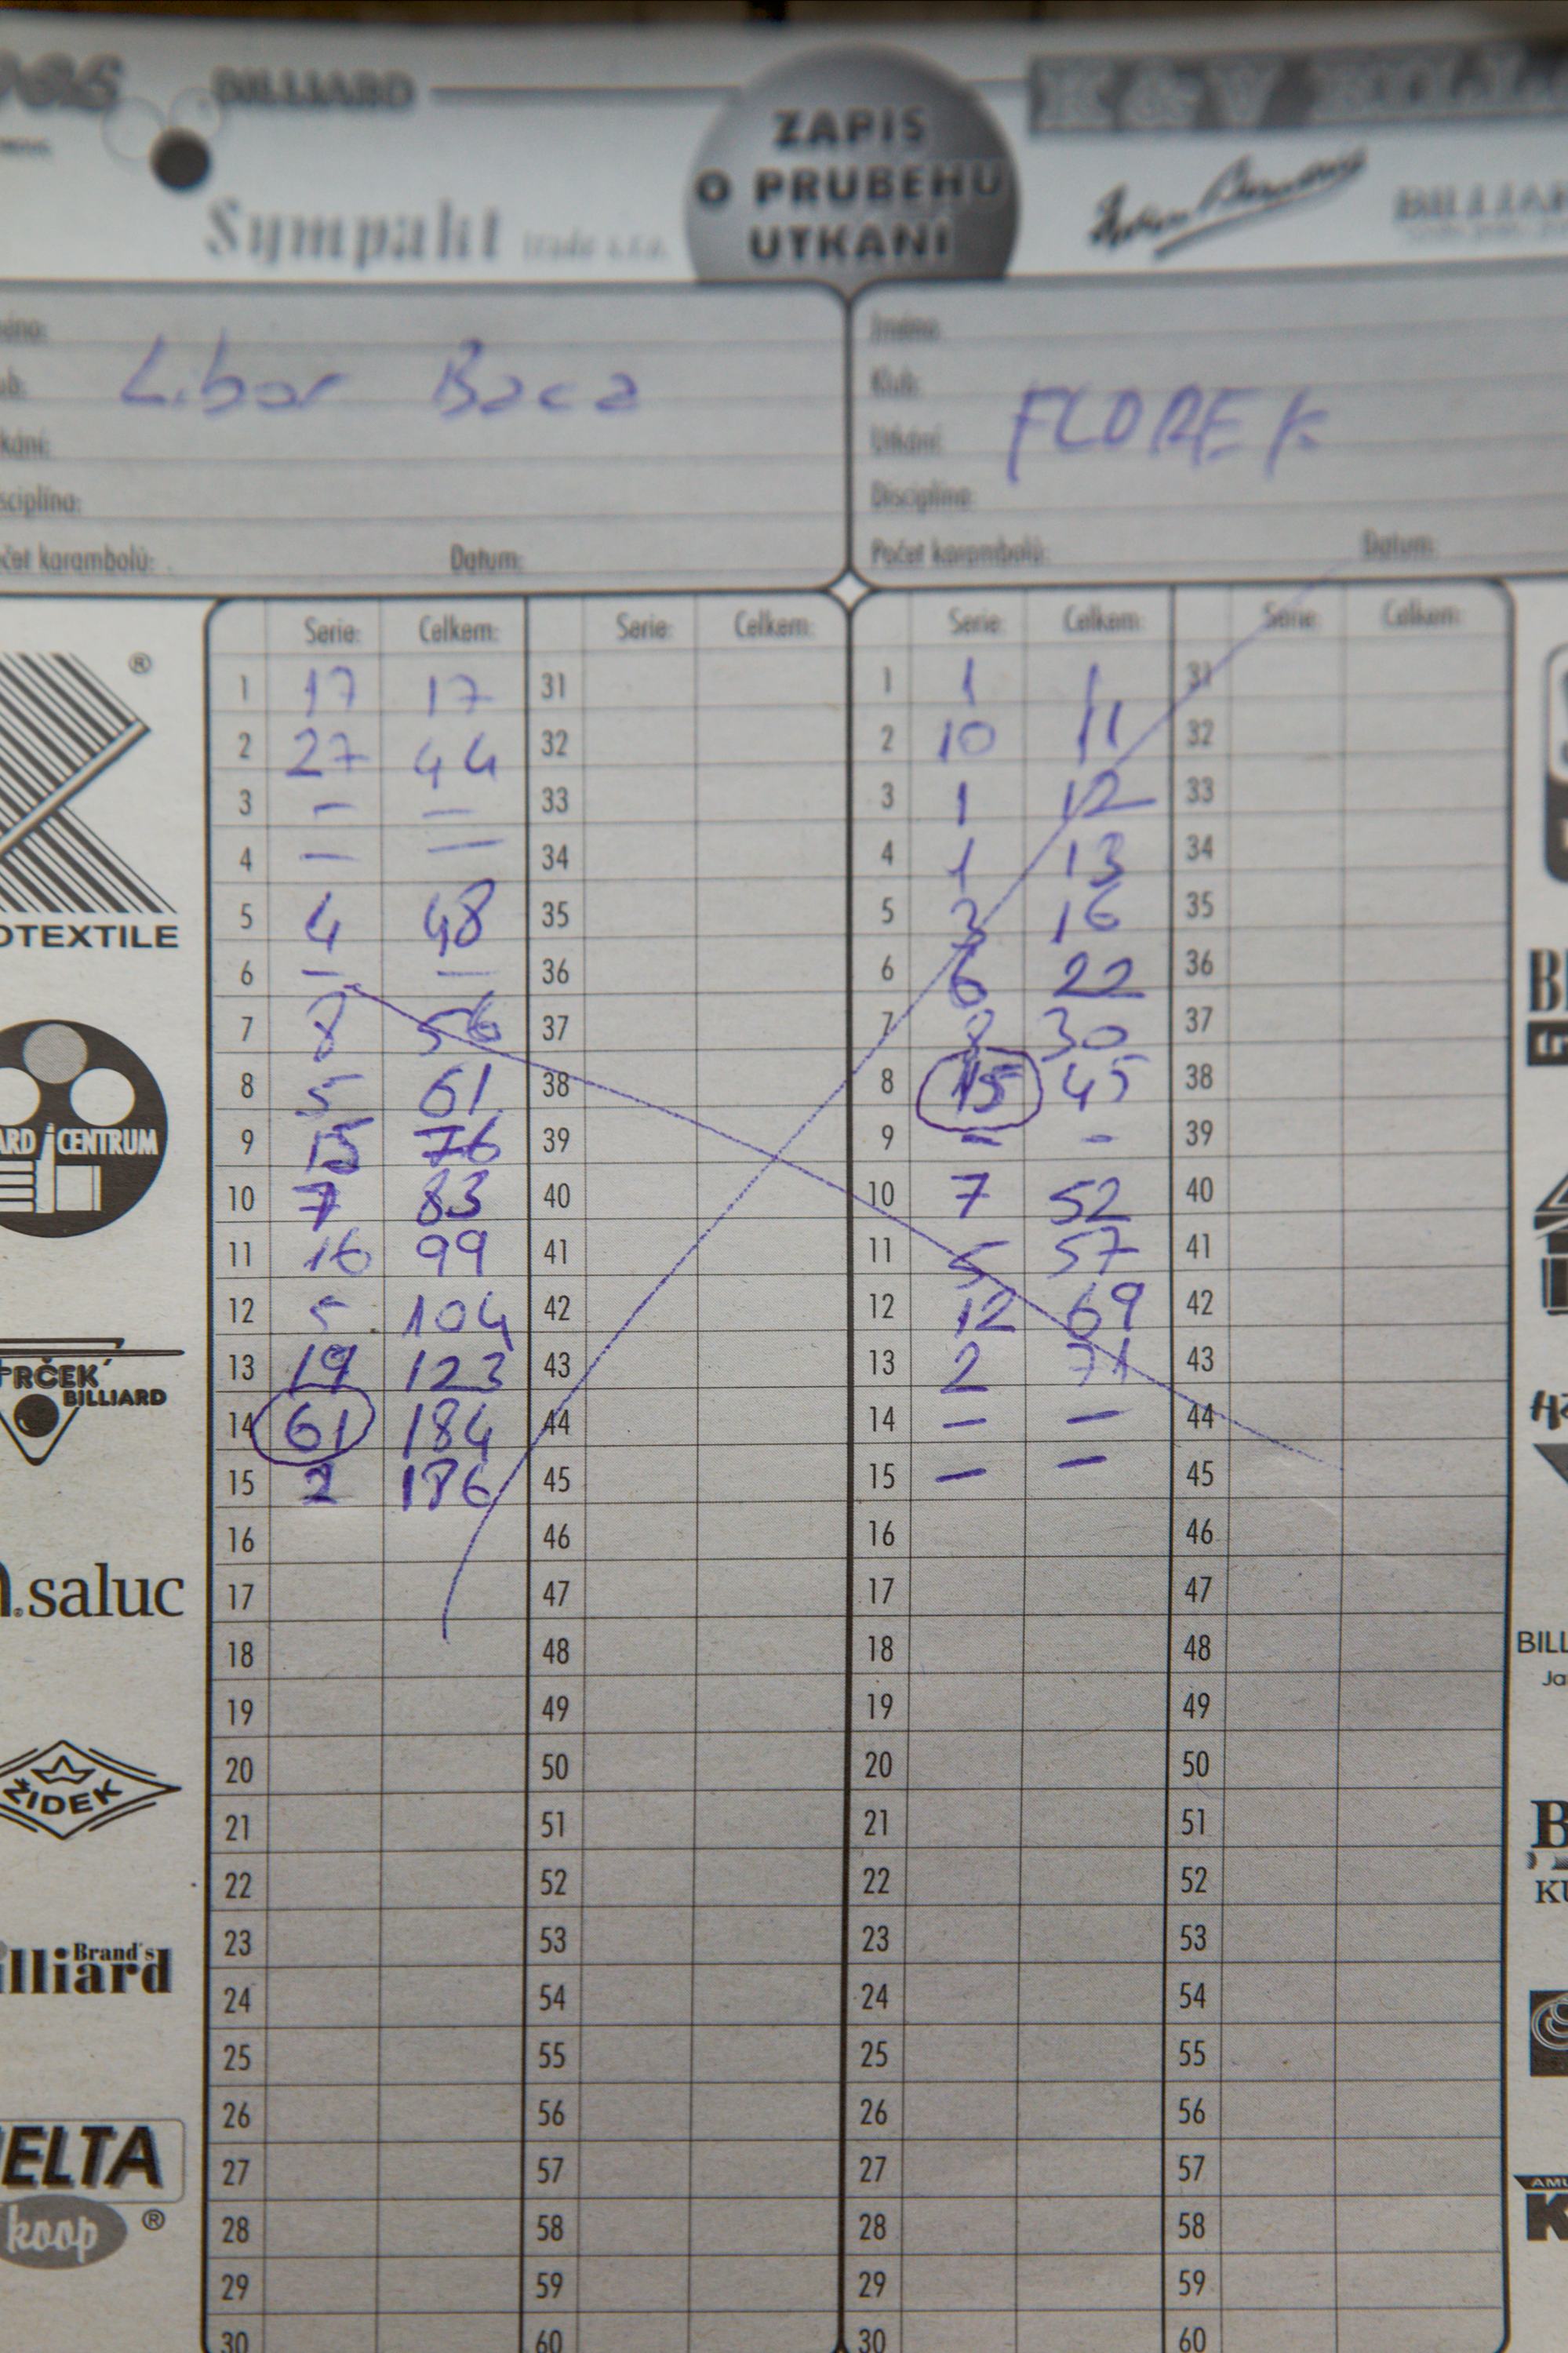 BILLIARD
ZAPIS
O PRUBEHU
UTKANI
K & V
Sympakt trade s.r.o.
Libor Baca
Disciplína:
Datum:
Jméno:
Klub:
Utkání:
FLOREK
Disciplína:
Počet karambolů:
Datum:
Serie: Celkem: Serie: Celkem: Serie: Celkem: Serie: Celkem:
1 17 17 31 1 1 1 31
2 27 44 32 2 10 11 32
3 – – 33 3 1 12 33
4 – – 34 4 1 13 34
5 4 48 35 5 3 16 35
6 – – 36 6 6 22 36
7 8 56 37 7 8 30 37
8 5 61 38 8 15 45 38
9 15 76 39 9 – – 39
10 7 83 40 10 7 52 40
11 16 99 41 11 5 57 41
12 5 104 42 12 12 69 42
13 19 123 43 13 2 71 43
14 61 184 44 14 – – 44
15 2 186 45 15 – – 45
16 46 16 46
17 47 17 47
18 48 18 48
19 49 19 49
20 50 20 50
21 51 21 51
22 52 22 52
23 53 23 53
24 54 24 54
25 55 25 55
26 56 26 56
27 57 27 57
28 58 28 58
29 59 29 59
30 60 30 60
®
OTEXTILE
ARD CENTRUM
RČEK
BILLIARD
saluc
ŽIDEK
Brand's
illiard
ELTA
koop ®
BILL
Ja
KU
AMU